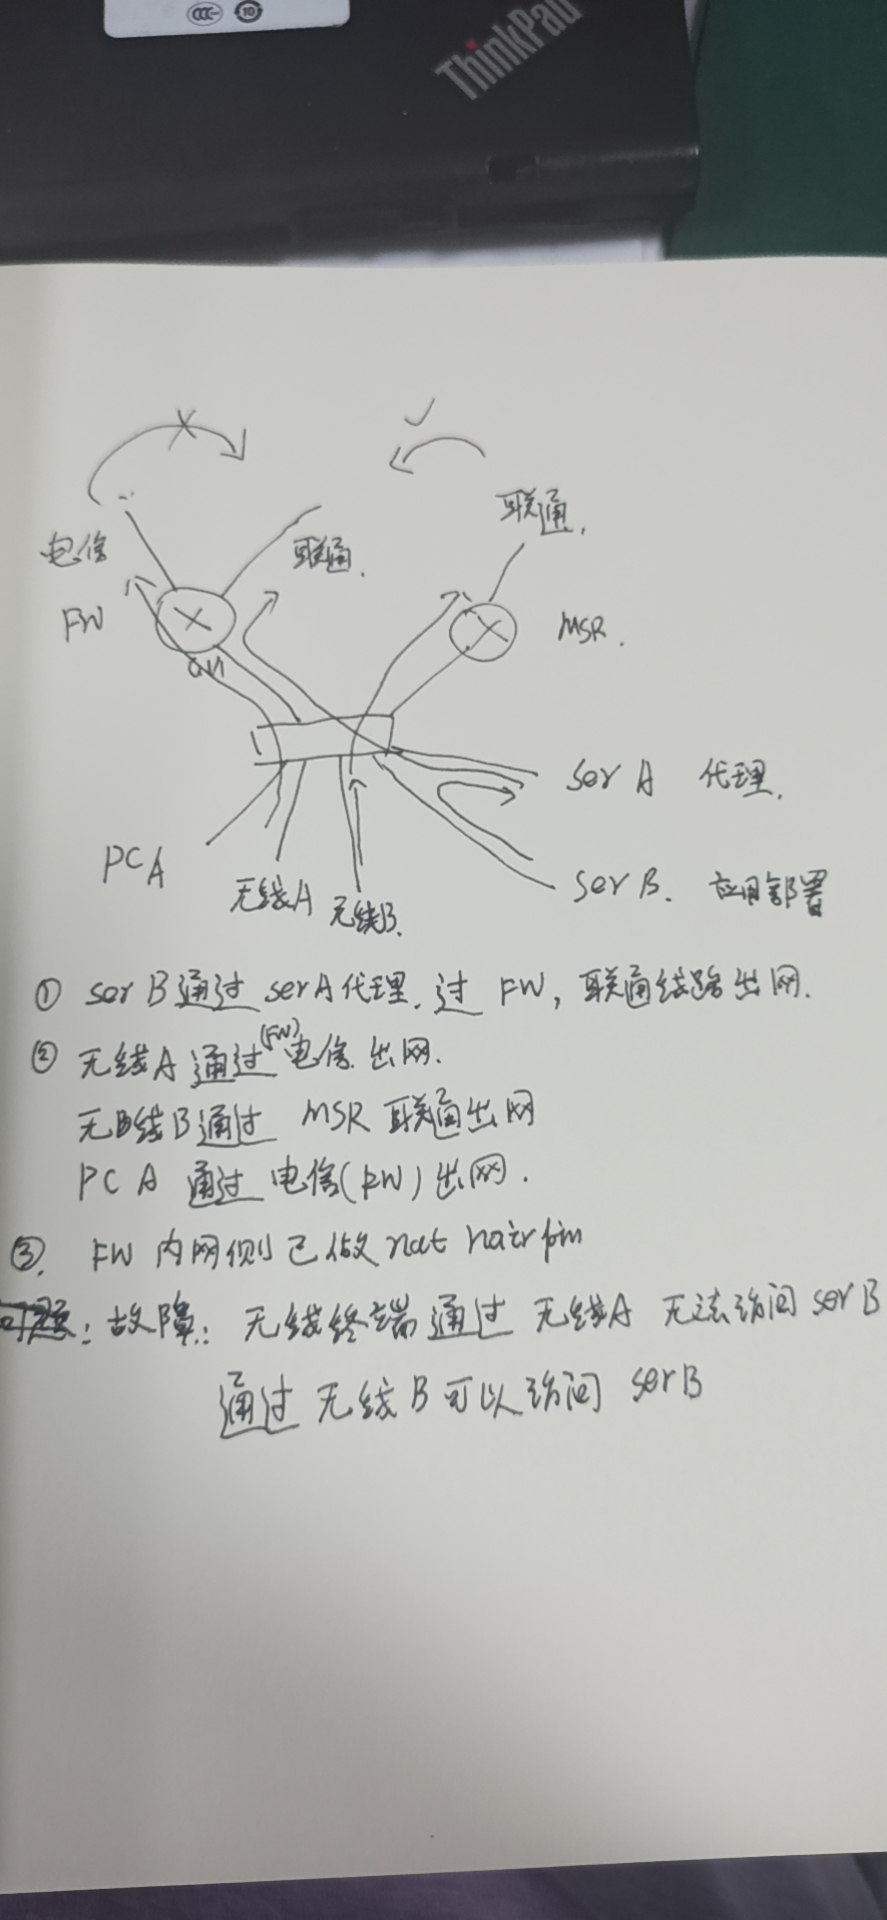 CCC
10
ThinkPad
电信
联通.
联通.
FW
MSR.
ser A 代理.
PC A
无线A
无线B.
ser B. 应用部署
① ser B 通过 ser A 代理. 过 FW, 联通线路出网.
② 无线A 通过(FW)电信 出网.
线B通过 MSR 联通出网
PC A 通过 电信(FW)出网.
③. FW 内网侧已做 nat hairpin
: 故障: 无线终端通过 无线A 无法访问 ser B
通过 无线B 可以访问 serB